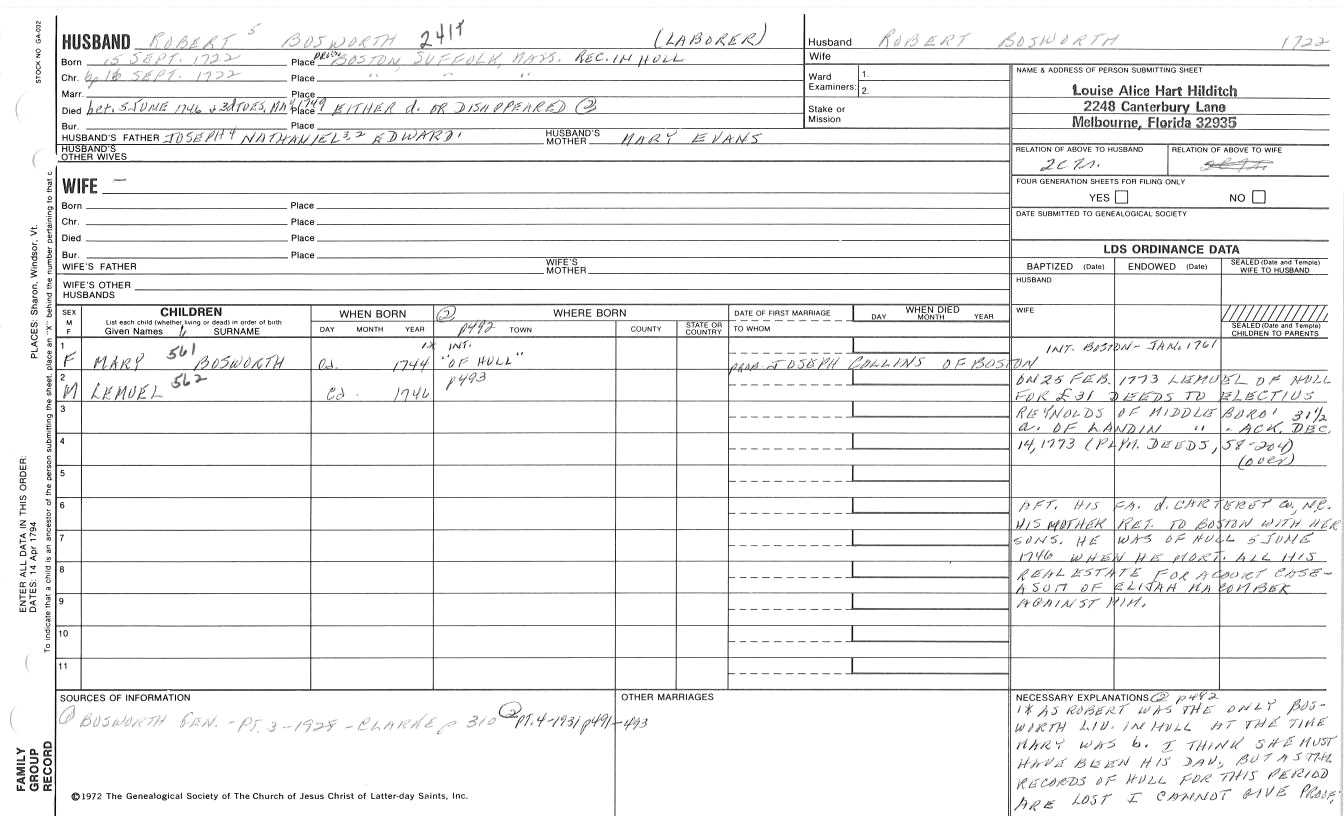 STOCK NO GA-032
HUSBAND ROBERT 5 BOSWORTH 241† (LABORER)
Born 15 SEPT. 1722 Place BOSTON, SUFFOLK, MASS. REC. IN HULL
Chr. 16 SEPT. 1722 Place " " "
Marr. Place
Died bet. 5 JUNE 1746 + 3d TUES, MAY 1749 Place EITHER d. OR DISAPPEARED (2)
Bur. Place
HUSBAND'S FATHER JOSEPH 4 NATHANIEL 3,2 EDWARD 1 HUSBAND'S MOTHER MARY EVANS
HUSBAND'S OTHER WIVES
WIFE —
Born Place
Chr. Place
Died Place
Bur. Place
WIFE'S FATHER WIFE'S MOTHER
WIFE'S OTHER HUSBANDS
Husband ROBERT BOSWORTH 1722
Wife
Ward Examiners: 1. 2.
Stake or Mission
NAME & ADDRESS OF PERSON SUBMITTING SHEET
Louise Alice Hart Hilditch
2248 Canterbury Lane
Melbourne, Florida 32935
RELATION OF ABOVE TO HUSBAND RELATION OF ABOVE TO WIFE
FOUR GENERATION SHEETS FOR FILING ONLY
YES NO
DATE SUBMITTED TO GENEALOGICAL SOCIETY
LDS ORDINANCE DATA
BAPTIZED (Date) ENDOWED (Date) SEALED (Date and Temple) WIFE TO HUSBAND
HUSBAND
WIFE
SEALED (Date and Temple) CHILDREN TO PARENTS
SEX M F
CHILDREN
List each child (whether living or dead) in order of birth
Given Names 6 SURNAME
WHEN BORN
DAY MONTH YEAR
(2) WHERE BORN
p492 TOWN COUNTY STATE OR COUNTRY
DATE OF FIRST MARRIAGE
TO WHOM
WHEN DIED
DAY MONTH YEAR
1 F MARY 561 BOSWORTH Cd. 1744 1x INT. "OF HULL" PROB. JOSEPH COLLINS OF BOSTON
INT. BOSTON - JAN. 1761
2 M LEMUEL 562 Cd. 1746 p493
3
4
5
6
7
8
9
10
11
ON 25 FEB. 1773 LEMUEL OF HULL
FOR £31 DEEDS TO ELECTIUS
REYNOLDS OF MIDDLEBORO' 31½
a. OF LAND IN " . ACK. DEC.
14, 1773 (PLYM. DEEDS, 58-204)
(over)
AFT. HIS FA. d. CARTERET Co, N.C.
HIS MOTHER RET. TO BOSTON WITH HER
SONS. HE WAS OF HULL 5 JUNE
1746 WHEN HE MORT. ALL HIS
REAL ESTATE FOR A COURT CASE-
A SUIT OF ELIJAH MACOMBER
AGAINST HIM.
SOURCES OF INFORMATION
(1) BOSWORTH GEN. - PT. 3 - 1928 - CLARKE p 310 (2) PT. 4 - 1931 p491-493
OTHER MARRIAGES
NECESSARY EXPLANATIONS (2) p492
1x AS ROBERT WAS THE ONLY BOS-
WORTH LIV. IN HULL AT THE TIME
MARY WAS b. I THINK SHE MUST
HAVE BEEN HIS DAU, BUT AS THE
RECORDS OF HULL FOR THIS PERIOD
ARE LOST I CANNOT GIVE PROOF.
©1972 The Genealogical Society of The Church of Jesus Christ of Latter-day Saints, Inc.
PLACES: Sharon, Windsor, Vt.
ENTER ALL DATA IN THIS ORDER:
DATES: 14 Apr 1794
To indicate that a child is an ancestor of the person submitting the sheet, place an "X" behind the number pertaining to that c
FAMILY
GROUP
RECORD